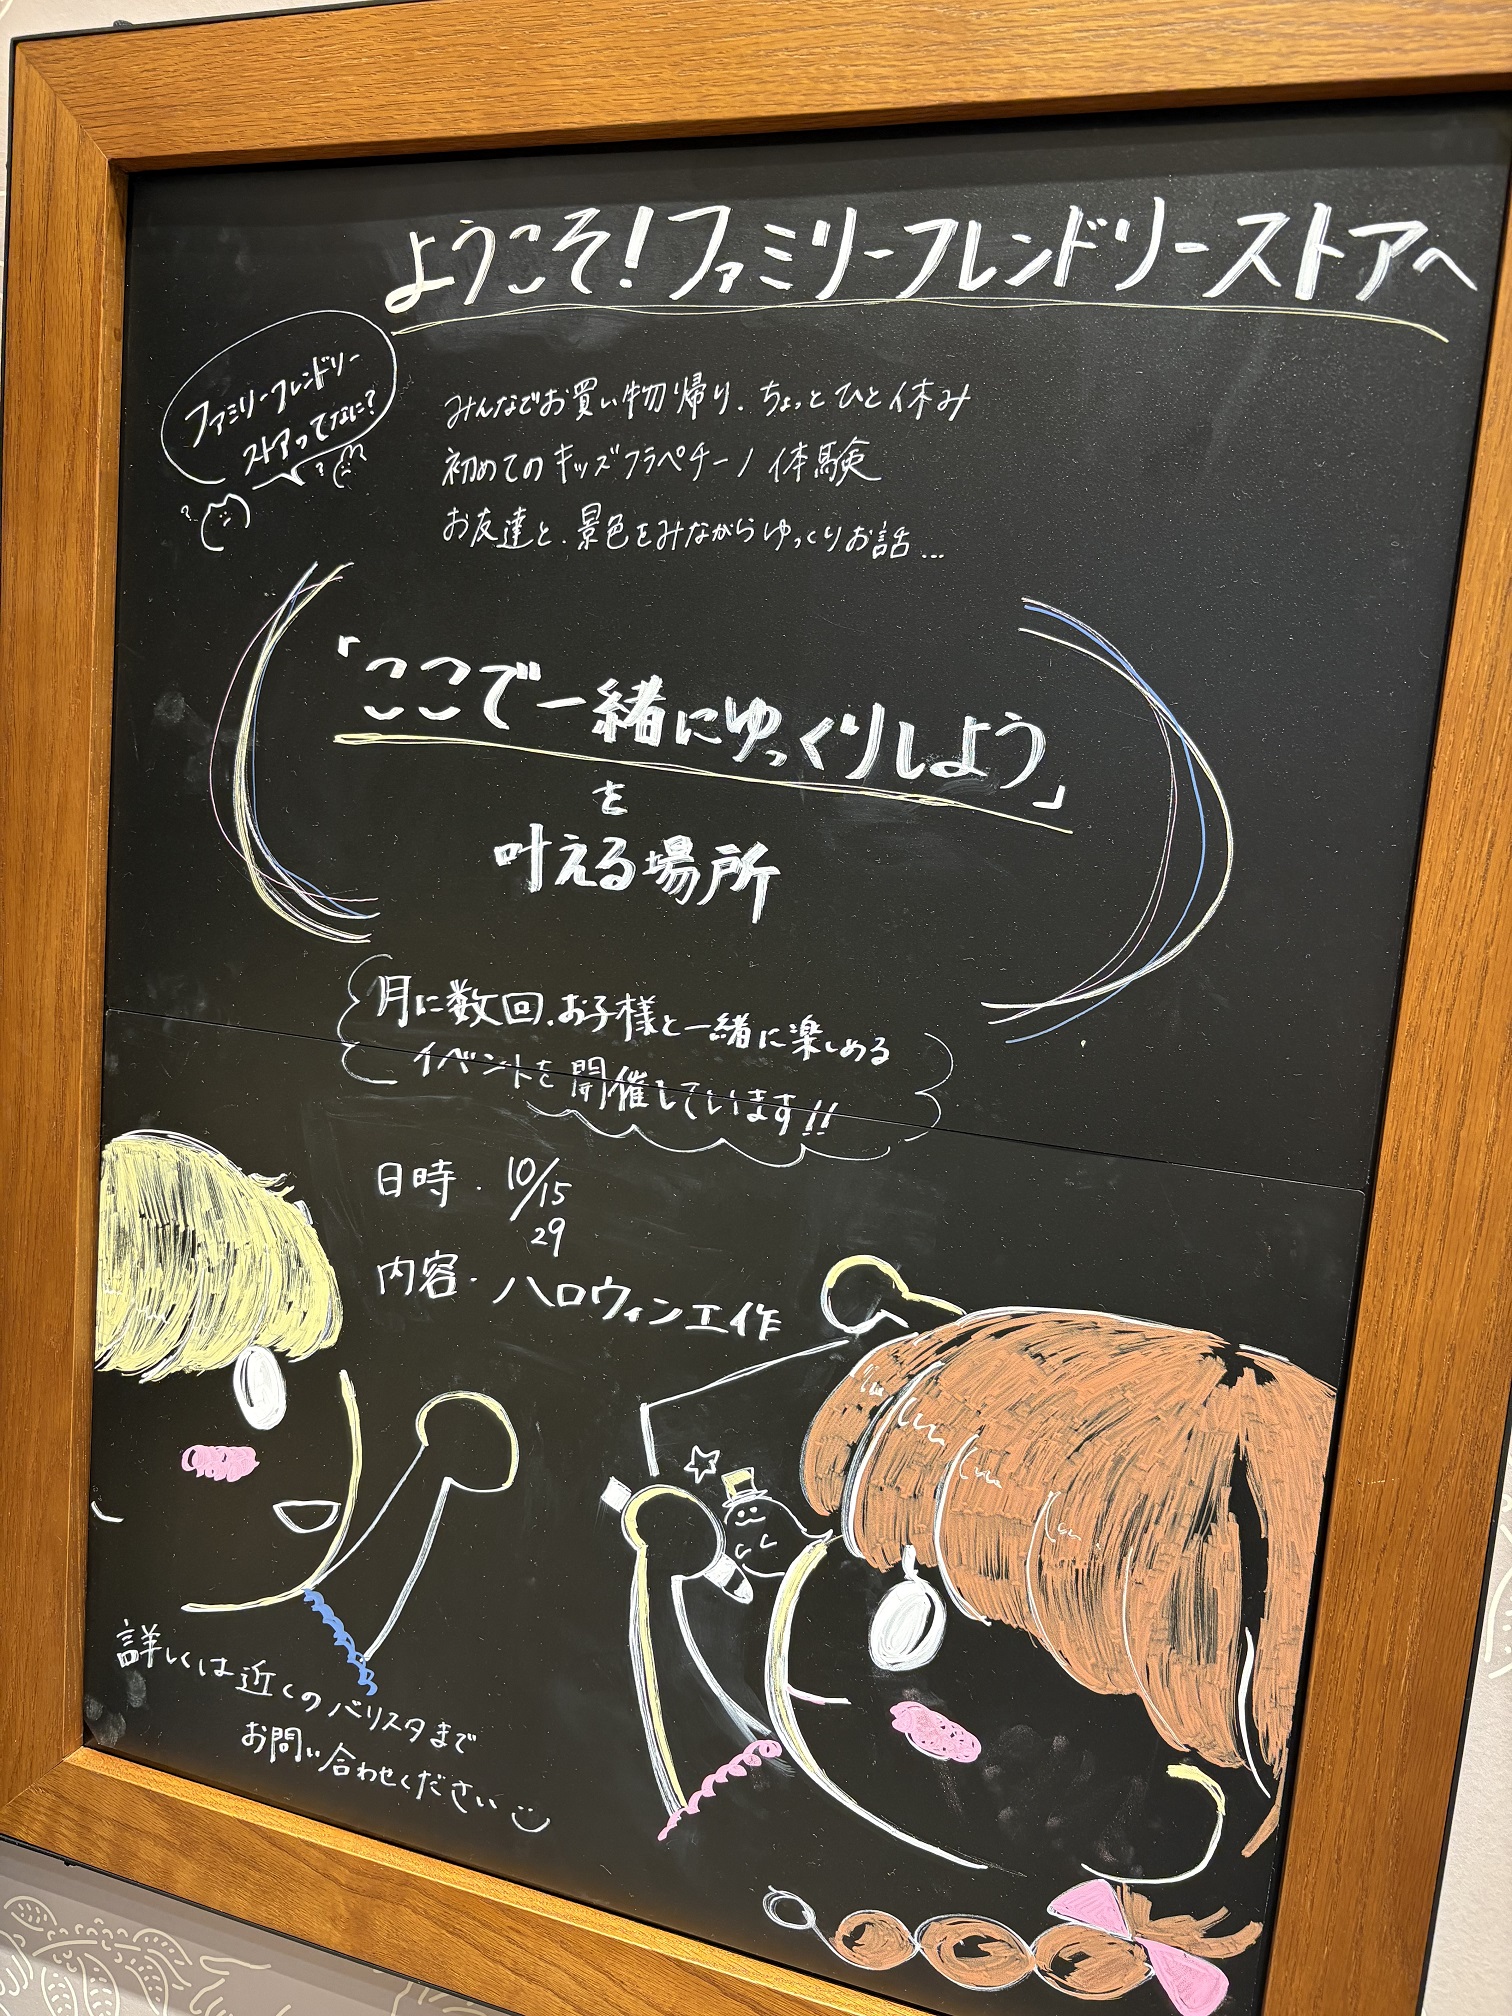 ようこそ!ファミリーフレンドリーストアへ
ファミリーフレンドリー
ストアってなに?
みんなでお買い物帰り、ちょっとひと休み
初めてのキッズフラペチーノ体験
お友達と、景色をみながらゆっくりお話...
「ここで一緒にゆっくりしよう」
を
叶える場所
月に数回、お子様と一緒に楽しめる
イベントを開催しています!!
日時・10/15
29
内容・ハロウィン工作
詳しくは近くのバリスタまで
お問い合わせください